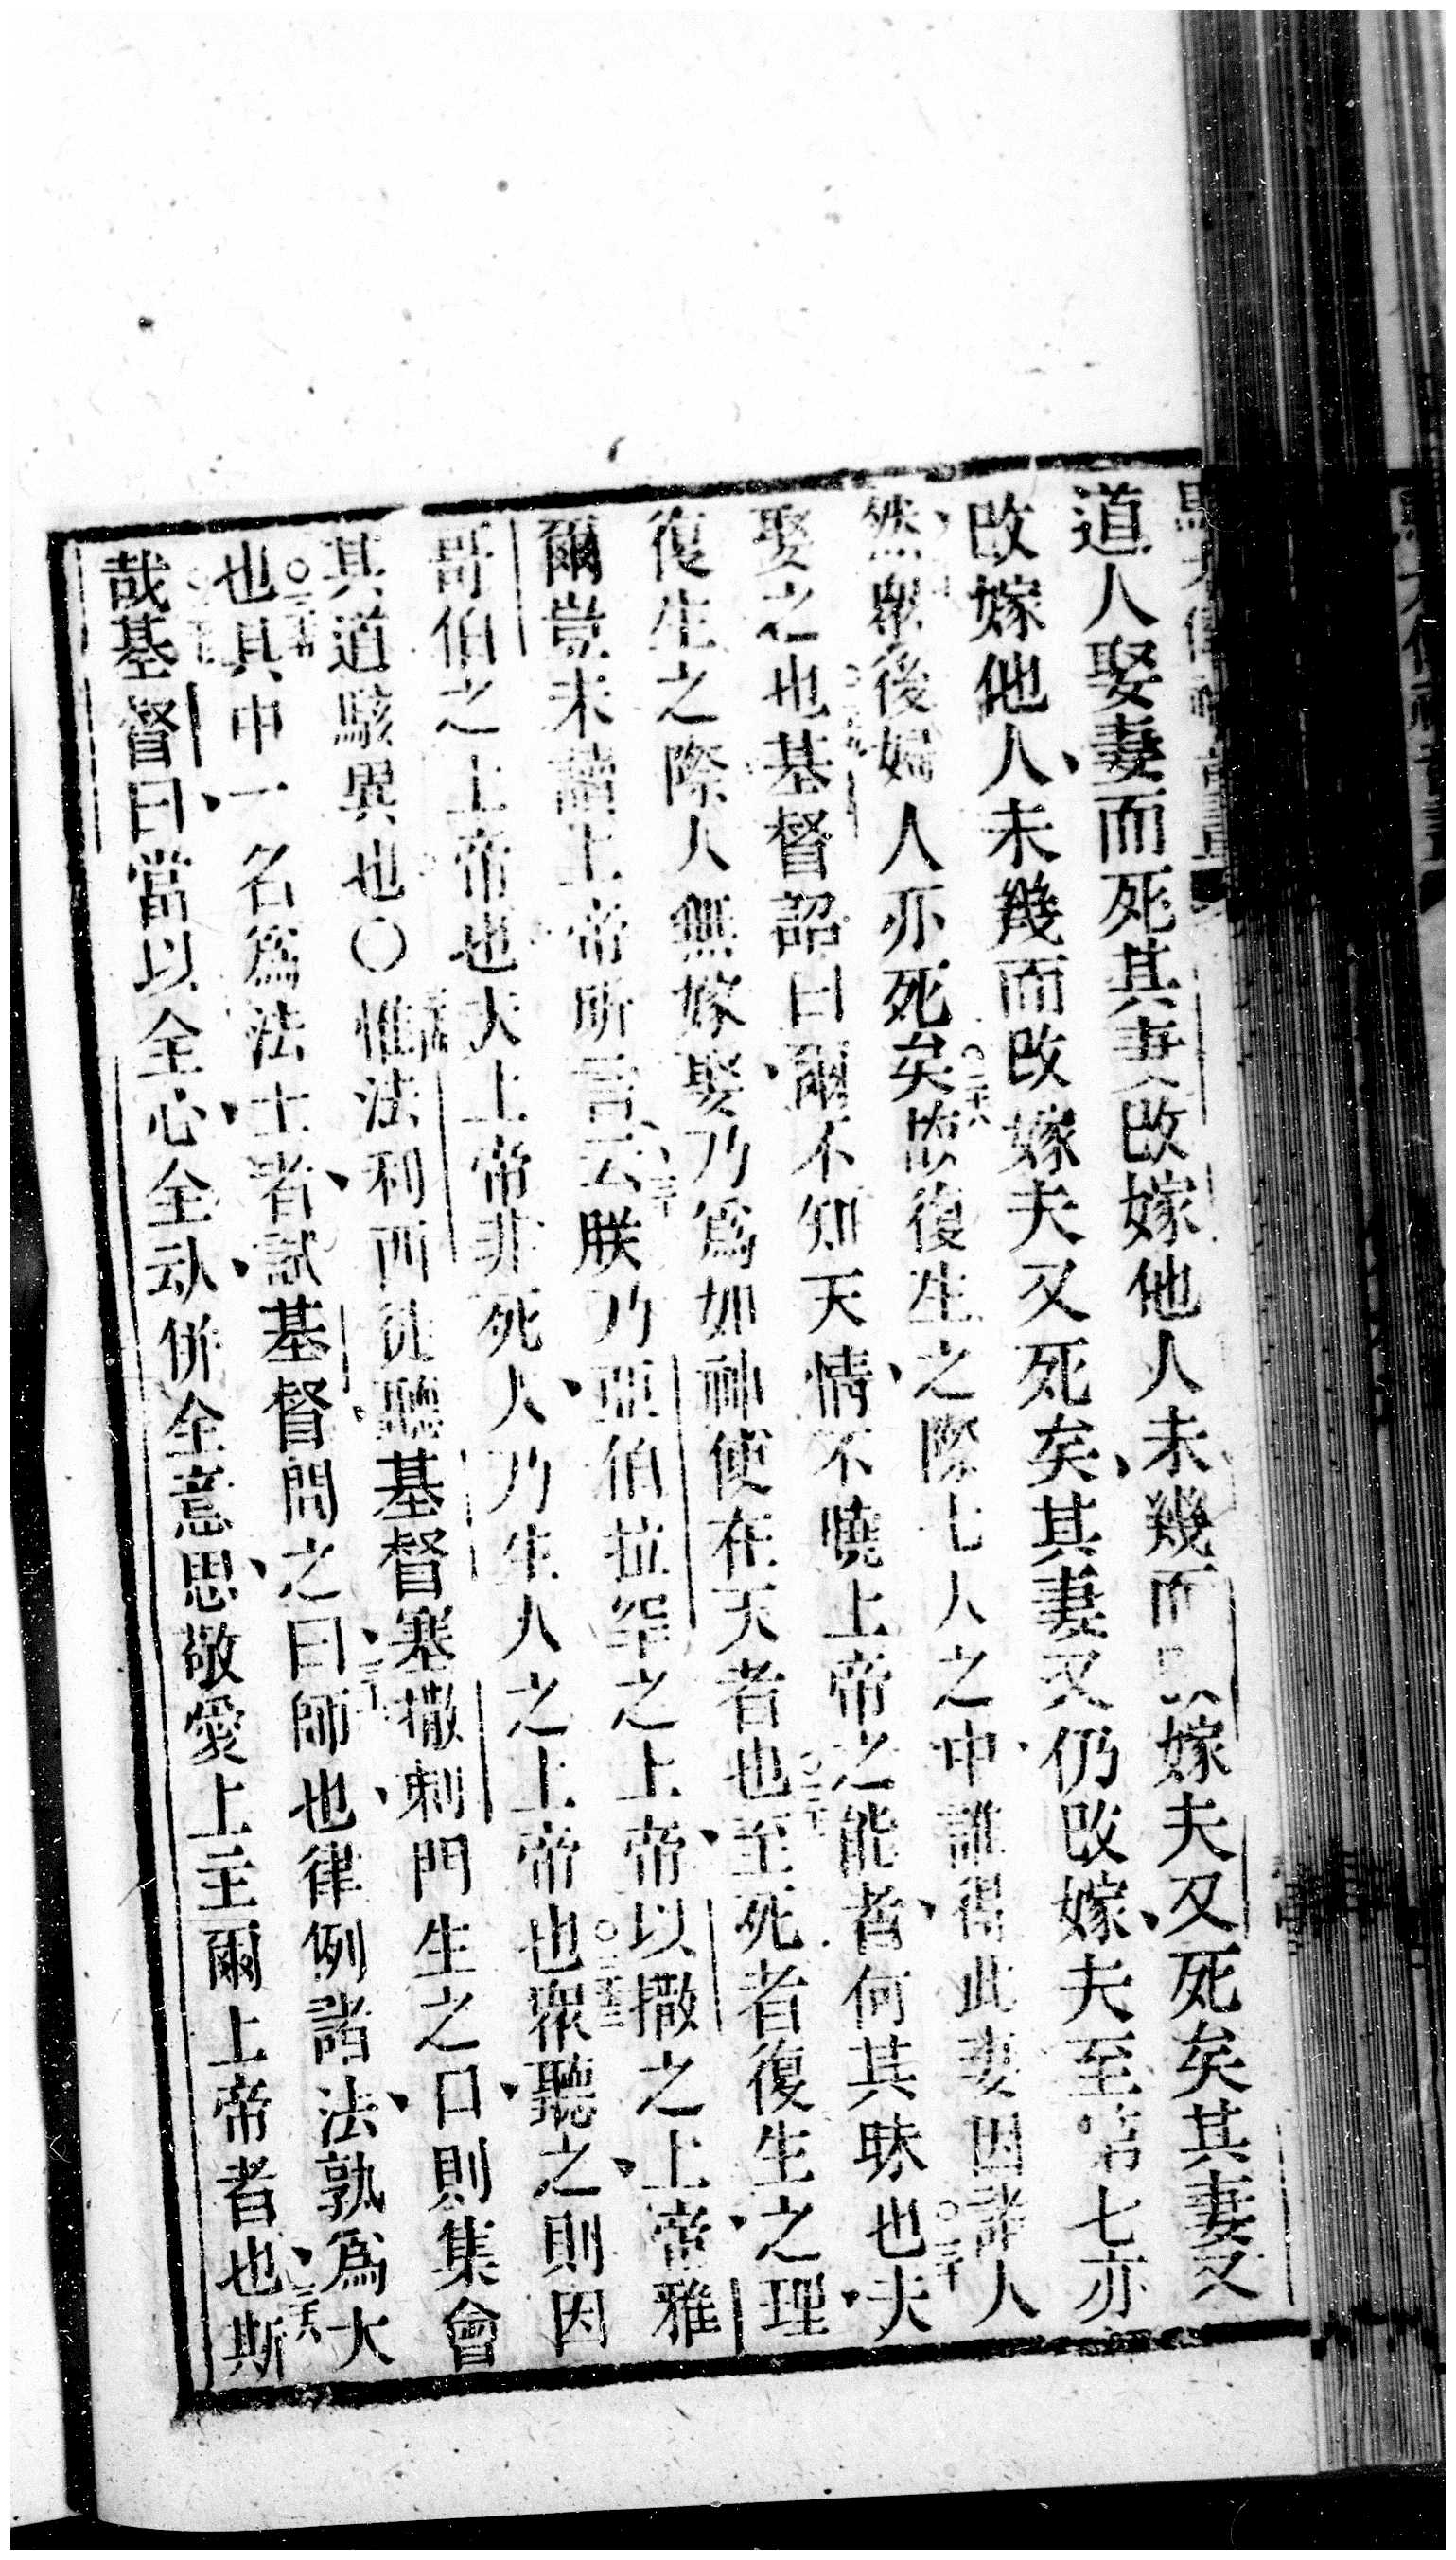 道人娶妻而死其妻又改嫁他人未幾而改嫁夫又死矣其妻又
改嫁他人未幾而改嫁夫又死矣其妻又仍改嫁夫至第七亦
然衆後婦人亦死矣故復生之際七人之中誰得此妻因諸人
娶之也基督詔曰爾不知天情不曉上帝之能者何其昧也夫
復生之際人無嫁娶乃爲如神使在天者也至死者復生之理
爾豈未讀上帝所言云朕乃亞伯拉罕之上帝以撒之上帝雅
哥伯之上帝也夫上帝非死人乃生人之上帝也衆聽之則因
其道駭異也〇惟法利西徒聽基督塞撒刺門生之口則集會
也其中一名爲法士者試基督問之曰師也律例諸法孰爲大
哉基督曰當以全心全动併全意思敬愛上主爾上帝者也斯